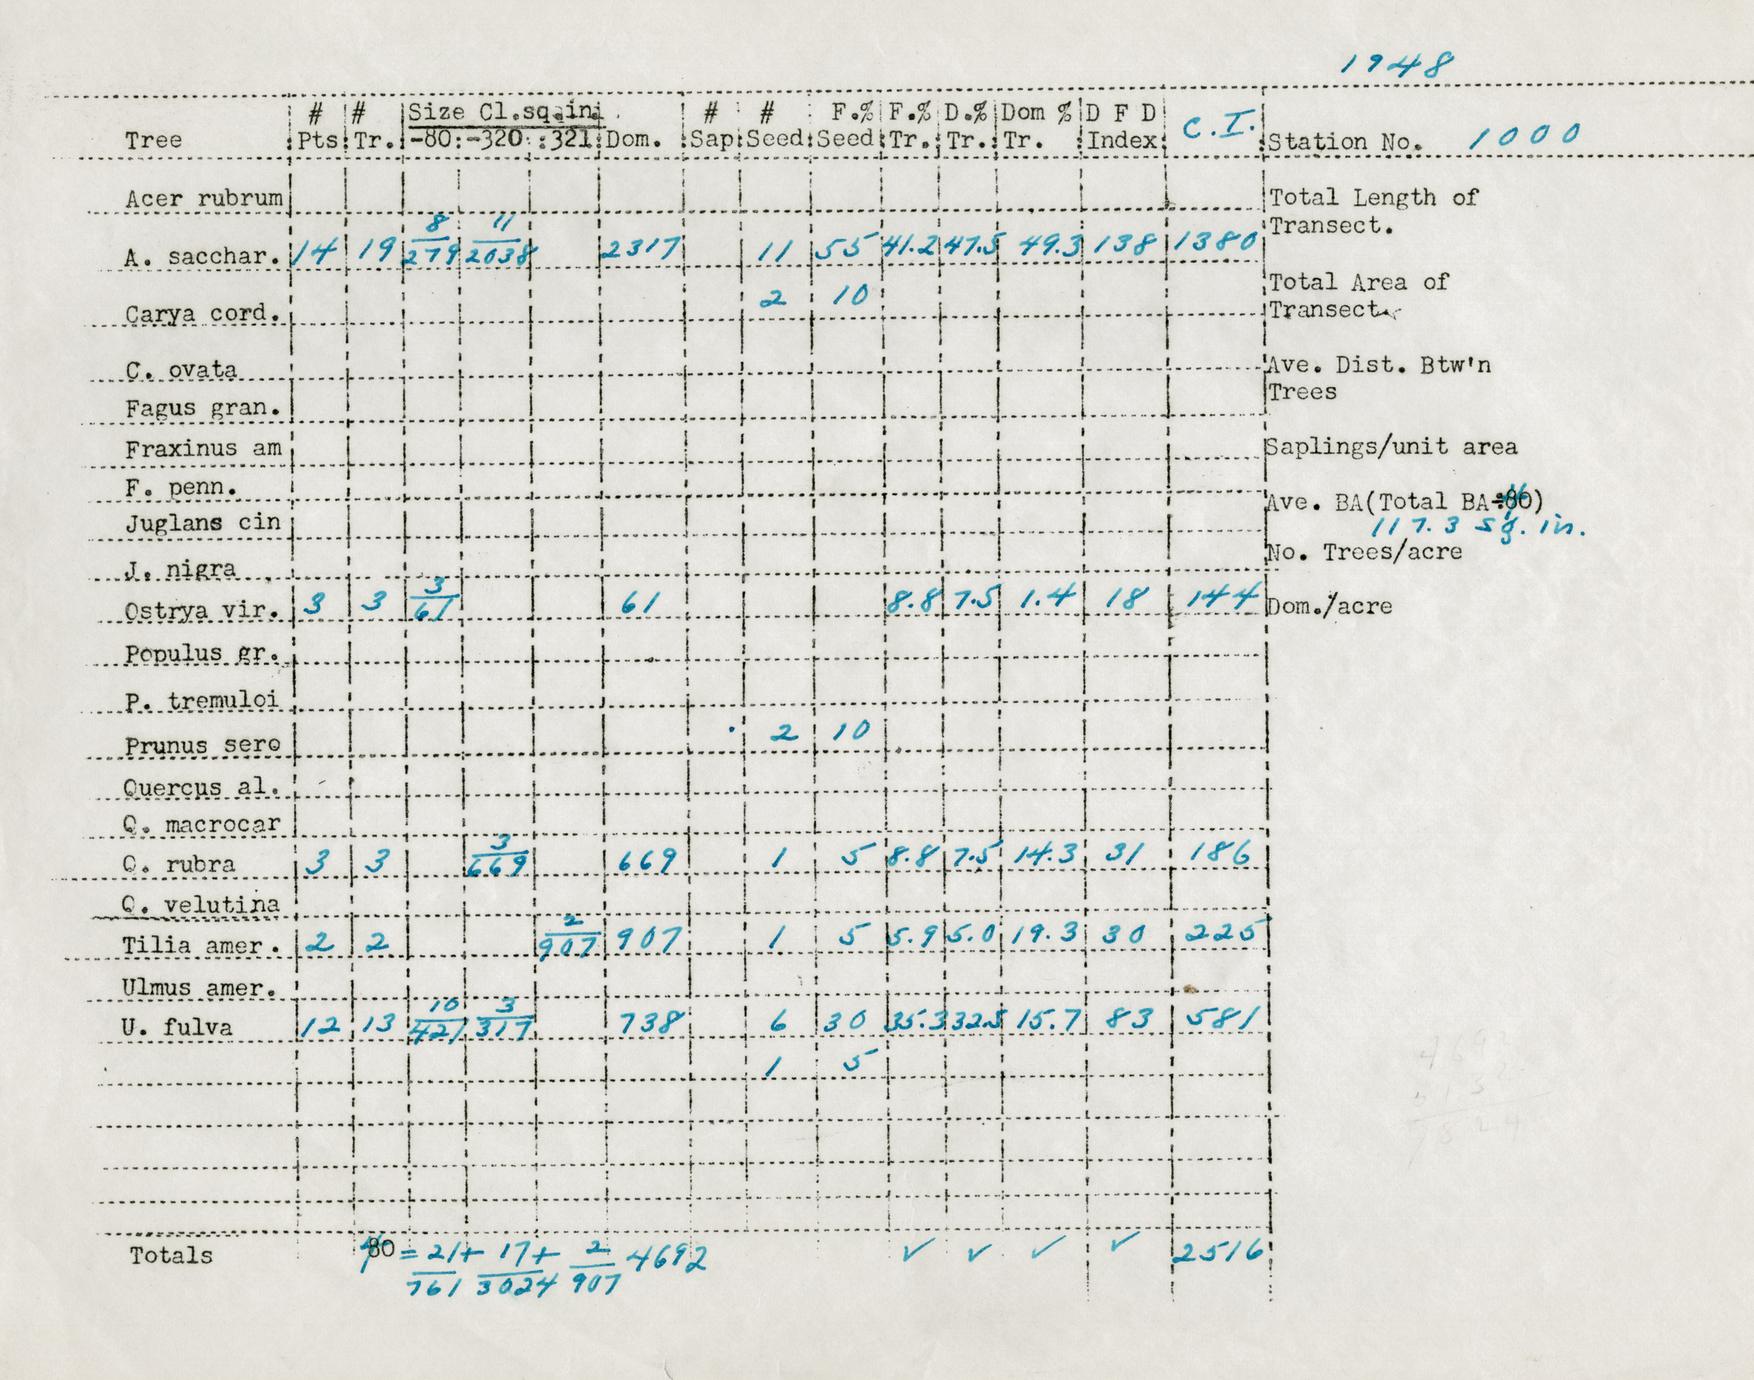 1948
# # Size Cl.sq.in. # # F.% F.% D.% Dom % D F D C.I.
Tree Pts Tr. -80 -320 321 Dom. Sap Seed Seed Tr. Tr. Tr. Index Station No. 1000
Acer rubrum Total Length of
Transect.
8 11
A. sacchar. 14 19 279 2038 2317 11 55 41.2 47.5 49.3 138 1380
2 10 Total Area of
Carya cord. Transect
C. ovata Ave. Dist. Btw'n
Trees
Fagus gran.
Fraxinus am Saplings/unit area
F. penn. Ave. BA(Total BA÷80)
Juglans cin 117.3 sq. in.
J. nigra No. Trees/acre
3
Ostrya vir. 3 3 61 61 8.8 7.5 1.4 18 144 Dom./acre
Populus gr.
P. tremuloi
Prunus sero 2 10
Quercus al.
Q. macrocar
3
Q. rubra 3 3 669 669 1 5 8.8 7.5 14.3 31 186
Q. velutina
2
Tilia amer. 2 2 907 907 1 5 5.9 5.0 19.3 30 225
Ulmus amer.
10 3
U. fulva 12 13 421 317 738 6 30 35.3 32.5 15.7 83 581
1 5
Totals 80 = 21+ 17+ 2 4692 ✓ ✓ ✓ ✓ 2516
761 3024 907